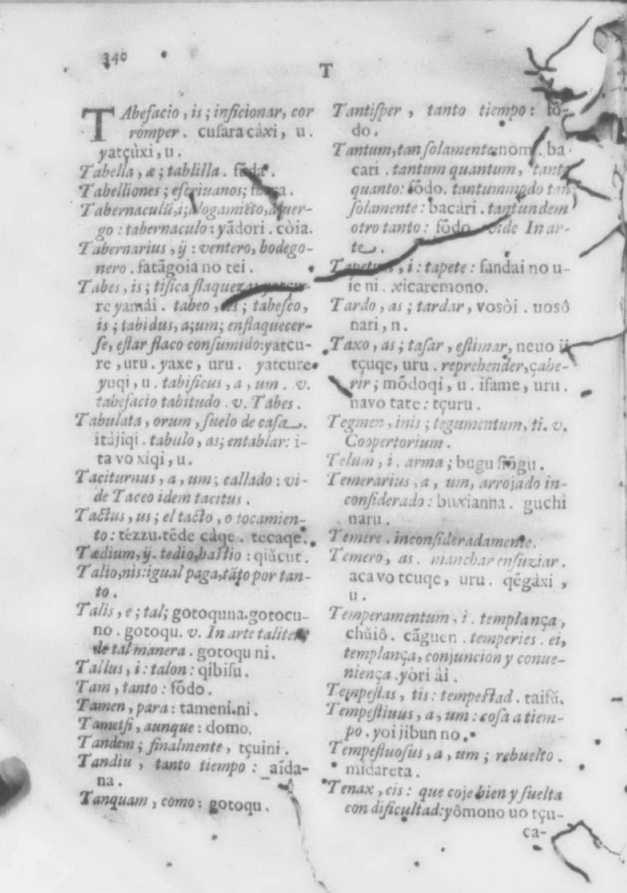 340
T
TAbefacio, is; inficionar, cor
romper. cusaracàxi, u.
yatçùxi, u.
Tabella, æ; tablilla. fuda.
Tabelliones; escriuanos;
Tabernaculũ, i; aluer-
go: tabernaculo: yãdori. còia.
Tabernarius, ÿ: ventero, bodego-
nero. fatãgoia no tei.
Tabes, is; tisica flaqueza: yatçu-
re yamái. tabeo, es; tabesco,
is; tabidus, a; um; enflaquecer-
se, estar flaco consumido: yatcu-
re, uru. yaxe, uru. yatcure
yuqi, u. tabificus, a, um. v.
tabefacio tabitudo. v. Tabes.
Tabulata, orum, suelo de casa.
itàjiqi. tabulo, as; entablar: i-
ta vo xiqi, u.
Taciturnus, a, um; callado: vi-
de Taceo idem tacitus.
Tactus, us; el tacto, o tocamien-
to: tèzzu. tẽde càqe. tecaqe.
Tædium, ÿ. tedio, hastio: qiăcut.
Talio, nis: igual paga, tãto por tan-
to.
Talis, e; tal; gotoquna. gotocu-
no. gotoqu. v. In arte taliter
de tal manera. gotoqu ni.
Tallus, i: talon: qibisu.
Tam, tanto: sõdo.
Tamen, para: tameni. ni.
Tametsi, aunque: domo.
Tandem; finalmente, tçuini.
Tandiu, tanto tiempo: aĩda-
na.
Tanquam, como: gotoqu.
Tantisper, tanto tiempo: sõ-
do.
Tantum, tan solamente: nomi. ba
cari. tantum quantum, tanto
quanto: sõdo. tantummodo tan
solamente: bacàri. tantundem
otro tanto: sõdo. vide In ar-
te.
Tapetum, i: tapete: fandai no u-
ie ni. xicaremono.
Tardo, as; tardar, vosòi. uosô
nari, u.
Taxo, as; tasar, estimar, neuo ii
tçuqe, uru. reprehender, çahe-
rir; mõdoqi, u. isame, uru.
navo tate: tçuru.
Tegmen, inis; tegumentum, ti. v.
Coopertorium.
Telum, i. arma; bugu fiõgu.
Temerarius, a, um, arrojado in-
considerado: buxianna. guchi
naru.
Temere. inconsideradamente.
Temero, as. manchar ensuziar.
aca vo tcuqe, uru. qẽgàxi,
u.
Temperamentum. i. templança,
chũiô. cãguen. temperies. ei,
templança, conjuncion y conue-
niença. yòri ài.
Tempestas, tis: tempestad. taifũ.
Tempestiuus, a, um: cosa a tiem-
po. yoi jibun no.
Tempestuosus, a, um; rebuelto.
midareta.
Tenax, cis: que coje bien y suelta
con dificultad: yômono uo tçu-
ca-